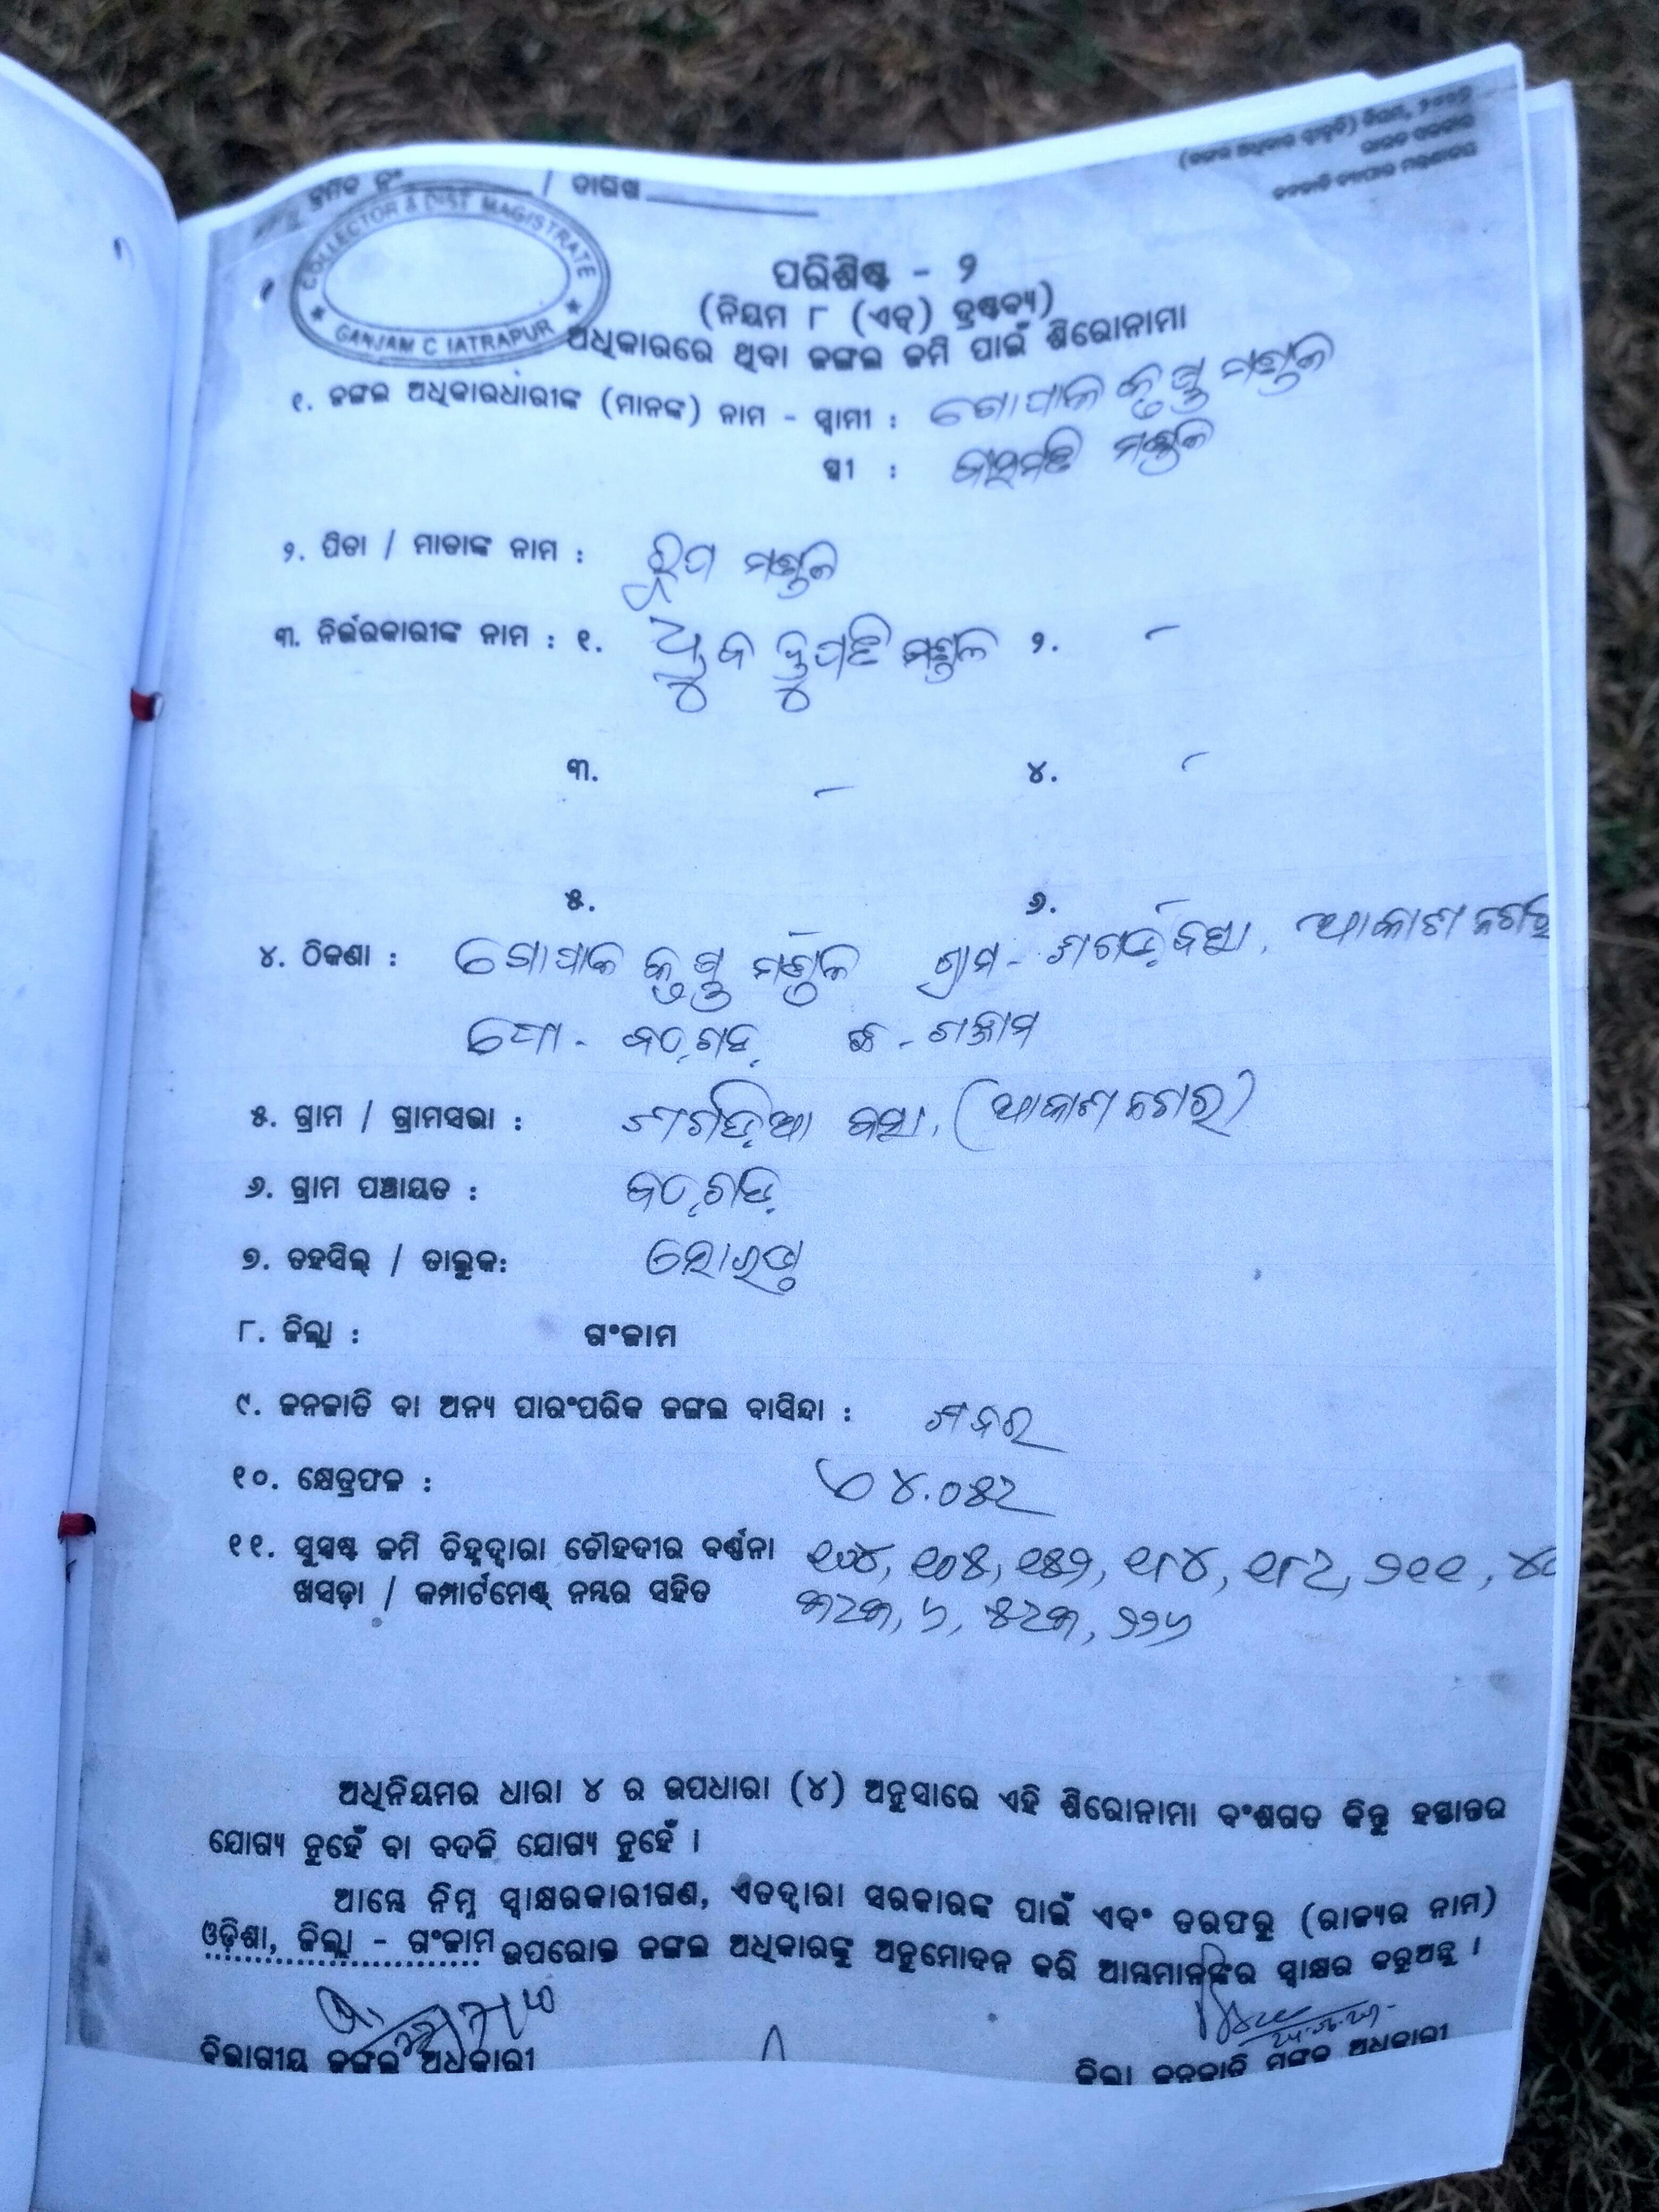 (ଜଙ୍ଗଲ ଅଧିକାର ସ୍ୱୀକୃତି) ନିୟମ, ୨୦୦୮
ଭାରତ ସରକାର
ଜନଜାତି ବ୍ୟାପାର ମନ୍ତ୍ରଣାଳୟ
କ୍ରମିକ ନଂ / ତାରିଖ
COLLECTOR & DIST MAGISTRATE
GANJAM C IATRAPUR
ପରିଶିଷ୍ଟ - ୨
(ନିୟମ ୮ (ଏଚ୍) ଦ୍ରଷ୍ଟବ୍ୟ)
ଅଧିକାରରେ ଥିବା ଜଙ୍ଗଲ ଜମି ପାଇଁ ଶିରୋନାମା
୧. ଜଙ୍ଗଲ ଅଧିକାରଧାରୀଙ୍କ (ମାନଙ୍କ) ନାମ - ସ୍ୱାମୀ : ଗୋପାଳ କୃଷ୍ଣ ମଣ୍ଡଳ
ସ୍ତ୍ରୀ : ମଣ୍ଡଳ
୨. ପିତା / ମାତାଙ୍କ ନାମ : ମଣ୍ଡଳ
୩. ନିର୍ଭରକାରୀଙ୍କ ନାମ : ୧. ମଣ୍ଡଳ ୨. –
୩. – ୪. –
୫. – ୬. –
୪. ଠିକଣା : ଗୋପାଳ କୃଷ୍ଣ ମଣ୍ଡଳ ଗ୍ରାମ -
ପୋ - ବଡ଼ଗଡ଼ ଜି - ଗଞ୍ଜାମ
୫. ଗ୍ରାମ / ଗ୍ରାମସଭା : ଶଗଡ଼ିଆ ବସା,
୬. ଗ୍ରାମ ପଞ୍ଚାୟତ : ବଡ଼ଗଡ଼
୭. ତହସିଲ୍ / ତାଲୁକ: ସୋରଡ଼ା
୮. ଜିଲ୍ଲା : ଗଂଜାମ
୯. ଜନଜାତି ବା ଅନ୍ୟ ପାରଂପରିକ ଜଙ୍ଗଲ ବାସିନ୍ଦା : ଶବର
୧୦. କ୍ଷେତ୍ରଫଳ : ୪.୦୫୨
୧୧. ସୁସ୍ପଷ୍ଟ ଜମି ଚିହ୍ନଦ୍ୱାରା ଚୌହଦୀର ବର୍ଣ୍ଣନା ୧୦୪, ୧୦୫, ୧୫୨, ୧୮୪, ୧୮୨, ୨୧୧,
ଖସଡ଼ା / କମ୍ପାର୍ଟମେଣ୍ଟ୍ ନମ୍ବର ସହିତ ୬, ୨୨୬
ଅଧିନିୟମର ଧାରା ୪ ର ଉପଧାରା (୪) ଅନୁସାରେ ଏହି ଶିରୋନାମା ବଂଶଗତ କିନ୍ତୁ ହସ୍ତାନ୍ତର
ଯୋଗ୍ୟ ନୁହେଁ ବା ବଦଳି ଯୋଗ୍ୟ ନୁହେଁ ।
ଆମ୍ଭେ ନିମ୍ନ ସ୍ୱାକ୍ଷରକାରୀଗଣ, ଏତଦ୍ୱାରା ସରକାରଙ୍କ ପାଇଁ ଏବଂ ତରଫରୁ (ରାଜ୍ୟର ନାମ)
ଓଡ଼ିଶା, ଜିଲ୍ଲା - ଗଂଜାମ ଉପରୋକ୍ତ ଜଙ୍ଗଲ ଅଧିକାରଙ୍କୁ ଅନୁମୋଦନ କରି ଆମ୍ଭମାନଙ୍କର ସ୍ୱାକ୍ଷର କରୁଅଛୁ ।
ବିଭାଗୀୟ ଜଙ୍ଗଲ ଅଧିକାରୀ
ଜିଲ୍ଲା ଜନଜାତି ମଙ୍ଗଳ ଅଧିକାରୀ